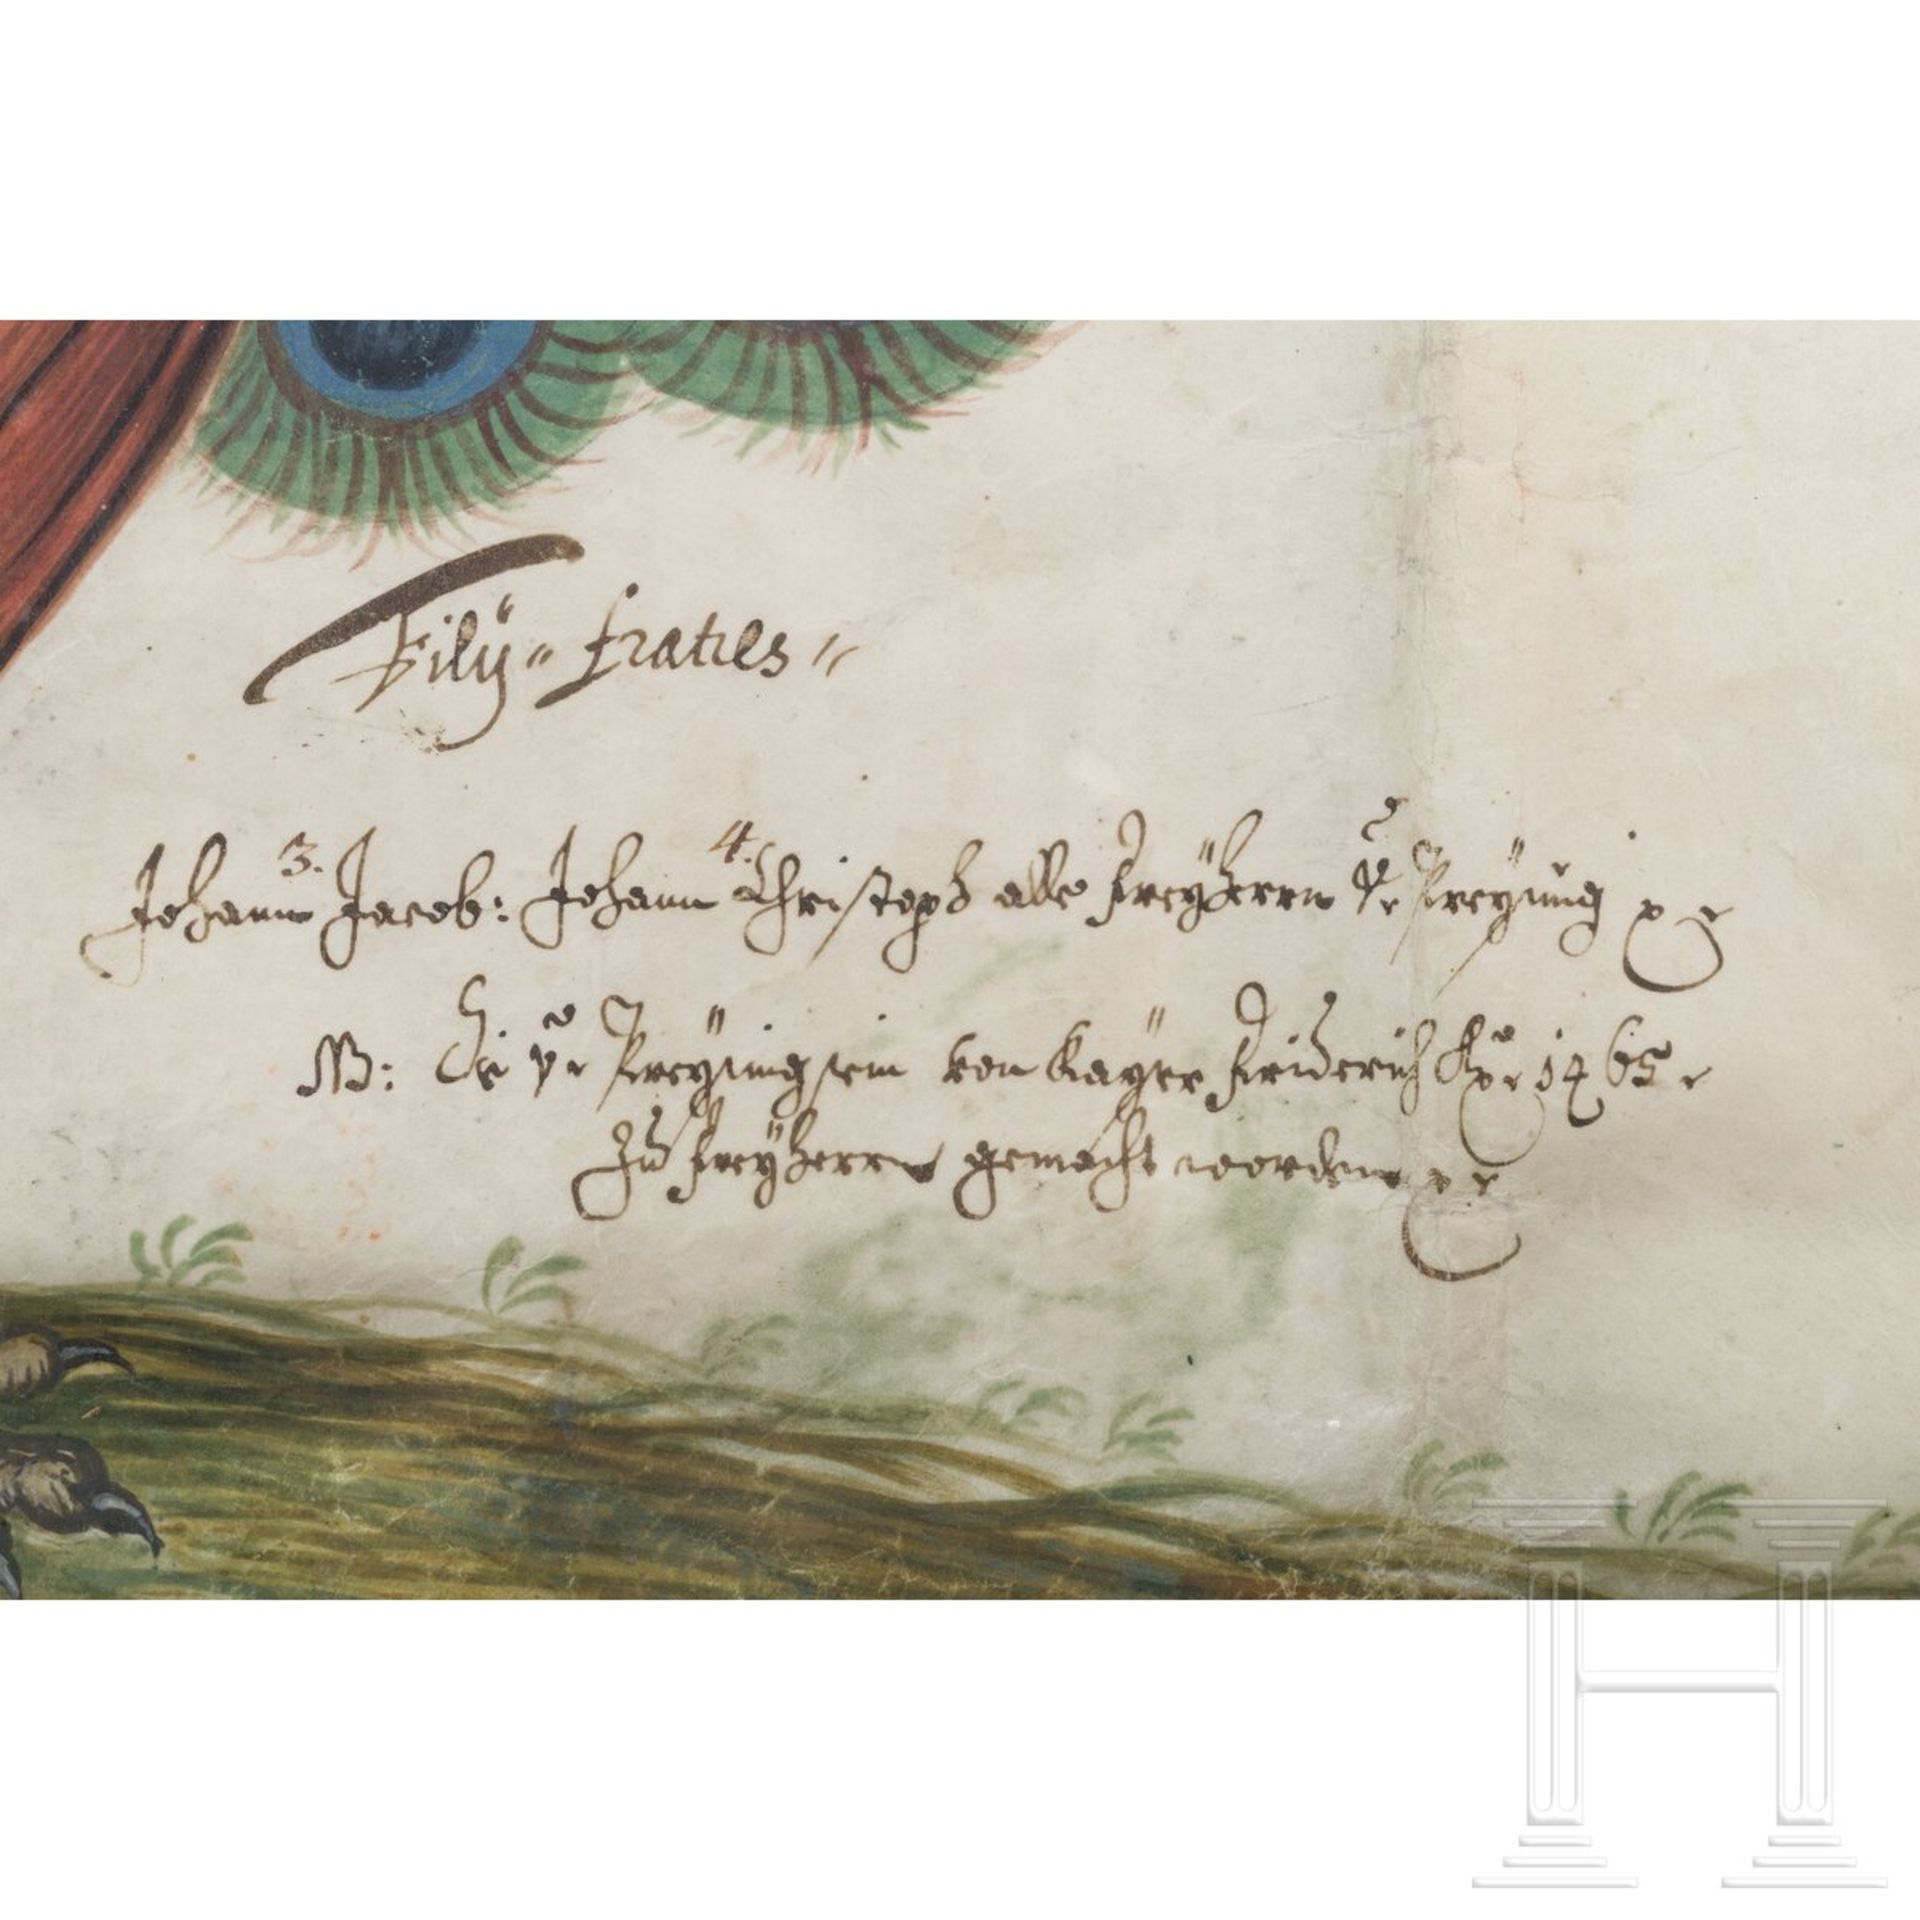 Filÿ " fratres "
3. 4.
Johann Jacob: Johann Christoph alle Freÿherrn v: Preÿsing
NB: Die v: Preÿsing sein von Kayser Friderich Aº 1465
Zu Freÿherrn gemacht worden
H